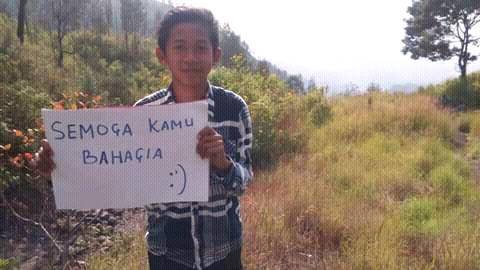 SEMOGA KAMU
BAHAGIA
:)